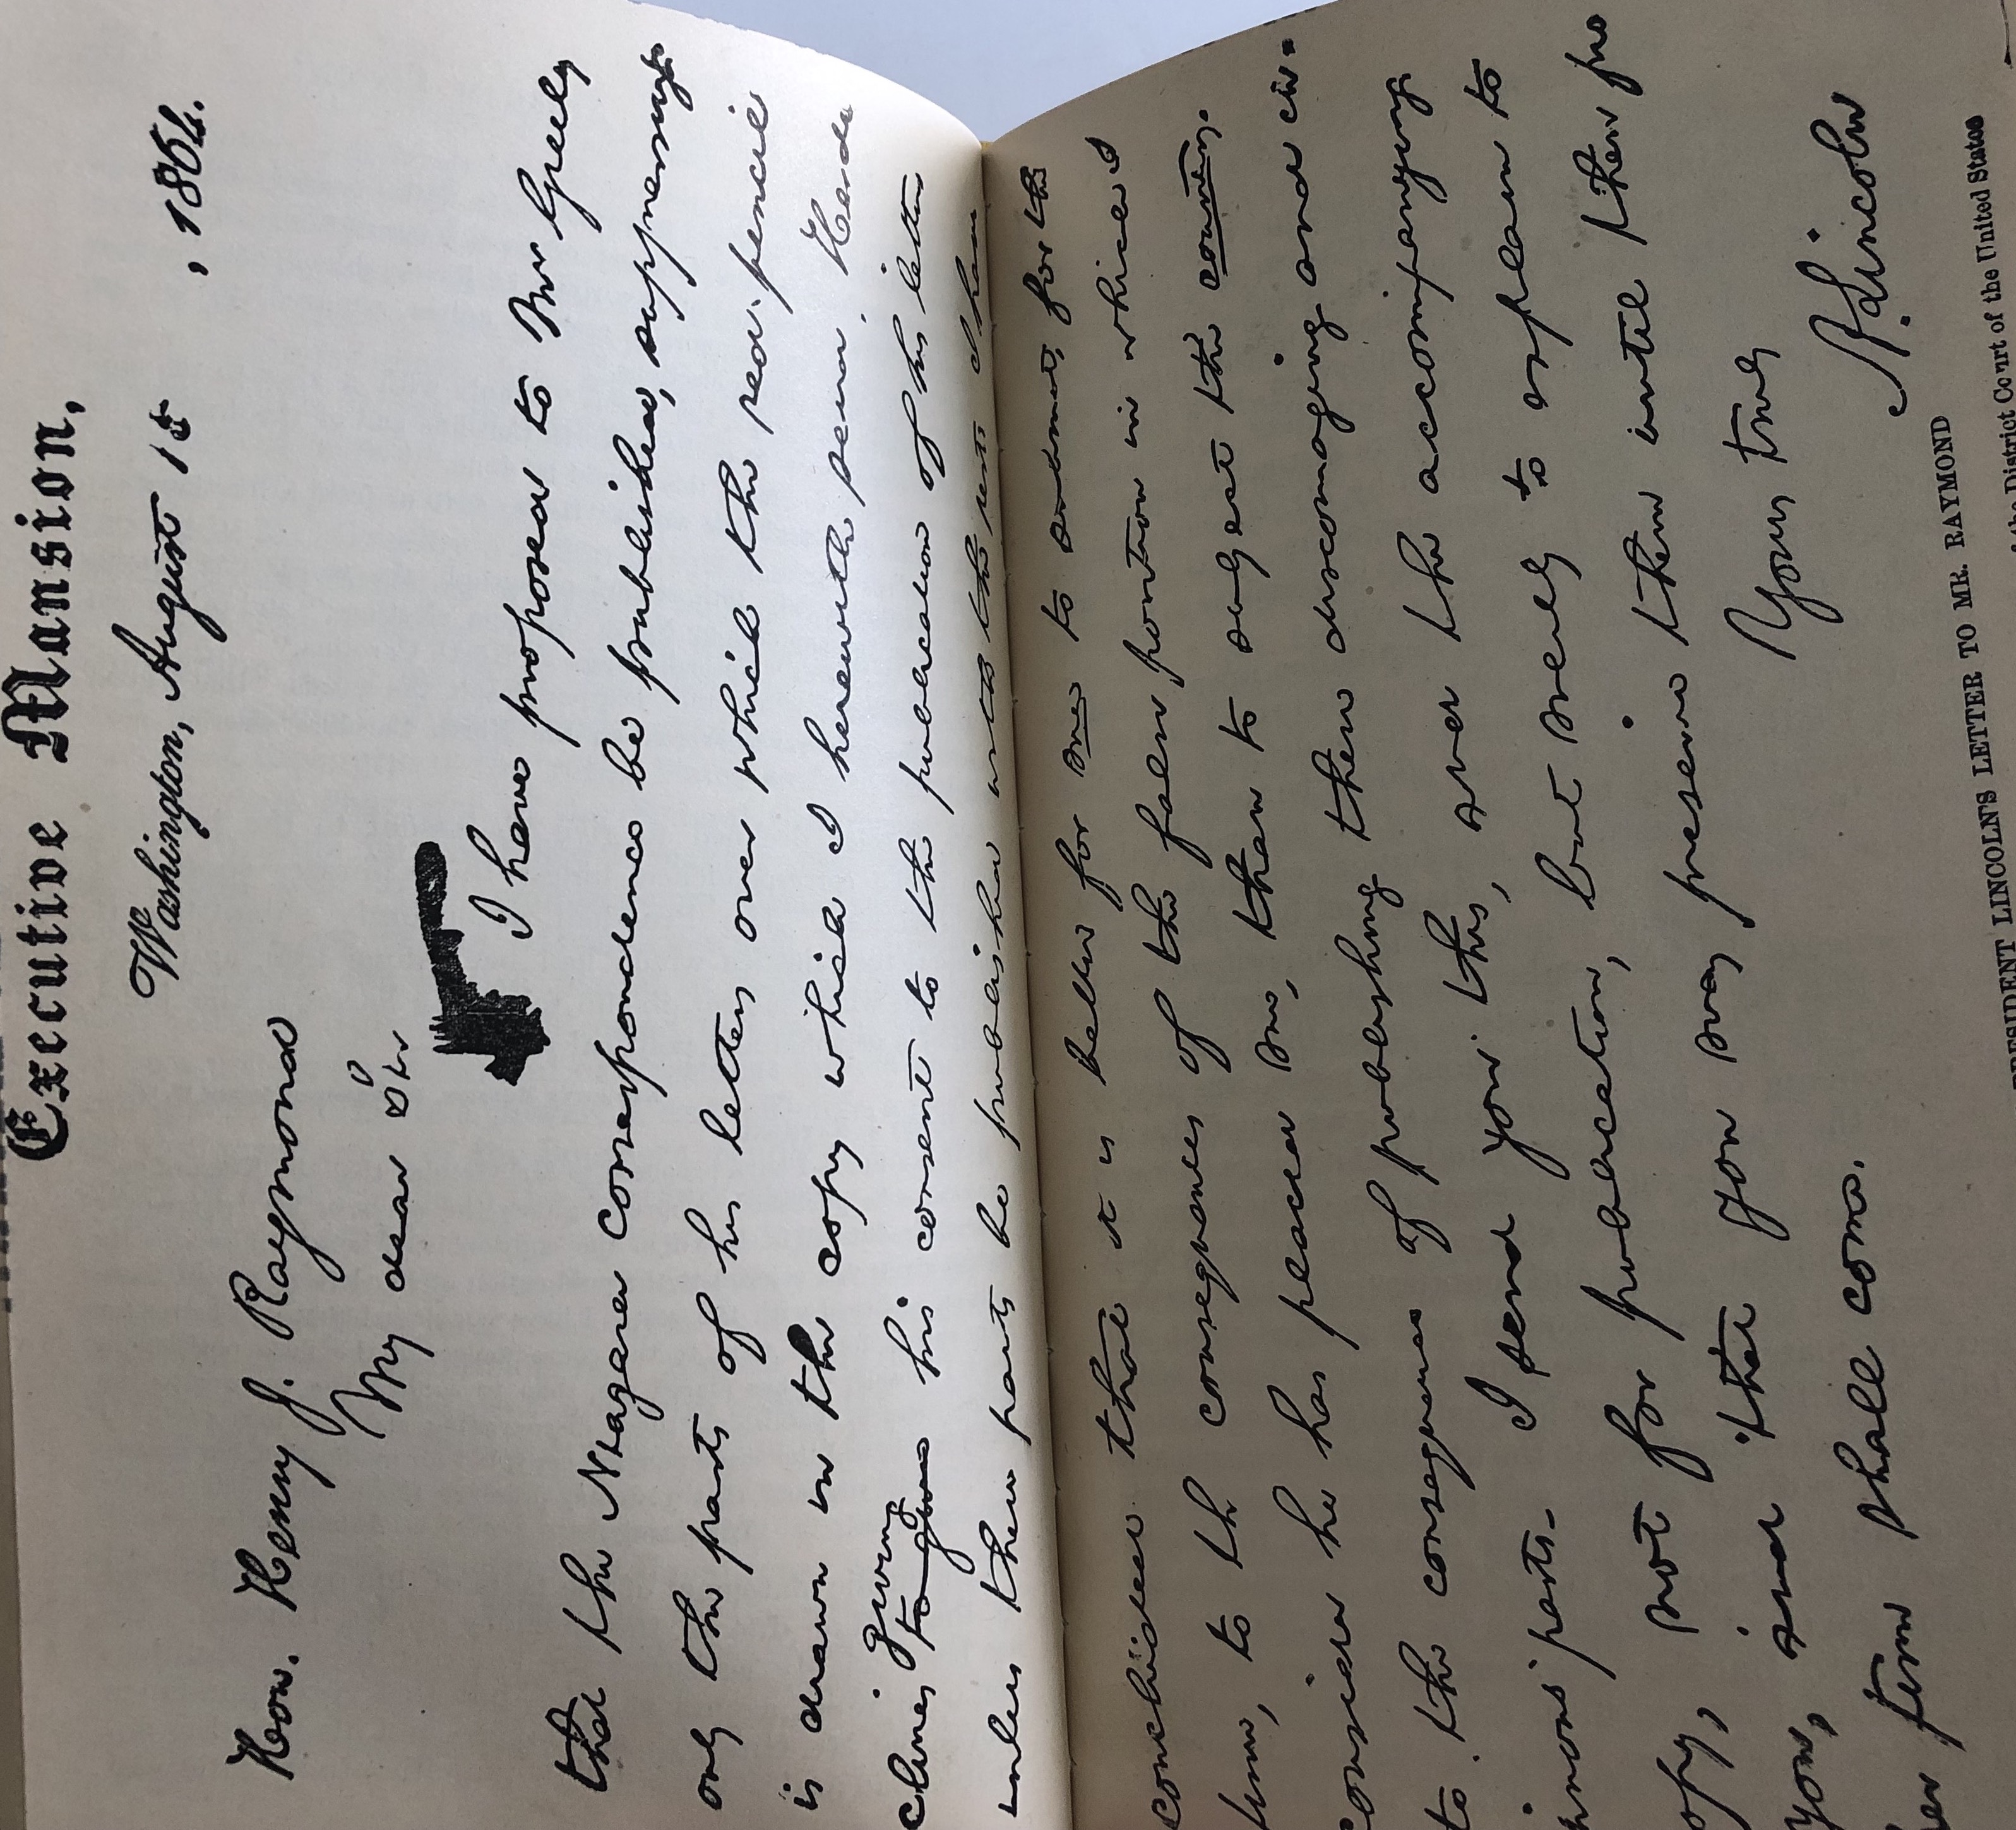 Executive Mansion,
Washington, August 15, 1864.
Hon. Henry J. Raymond
My dear Sir
I have proposed to Mr Greely
that the Niagara correspondence be published, suppressing
only the parts of his letters over which the red-pencil
is drawn in the copy which I herewith send. He de
clines giving
to give his consent to the publication of his letters
unless these parts be published with the rest. I have
concluded that it is better for me to submit, for the
time, to the consequences of the false position in which I
consider he has placed me, than to subject the country
to the consequences of publishing these discouraging and in-
jurious parts. I send you this, and the accompanying
copy, not for publication, but merely to explain to
you, and that you may preserve them until their pro
per time shall come.
Yours truly
A. Lincoln
PRESIDENT LINCOLN'S LETTER TO MR. RAYMOND
the District Court of the United States